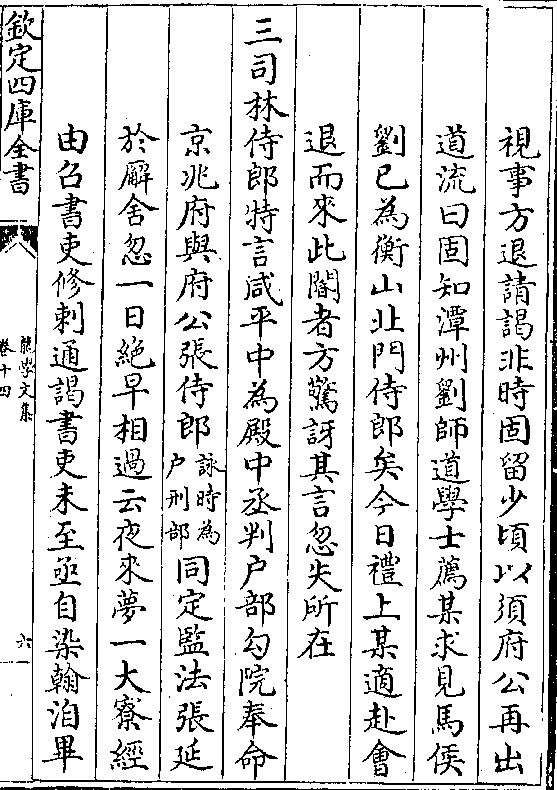 視事方退請謁非時固留少頃以須府公再出
道流曰固知潭州劉師道學士薦某求見馬侯
劉已為衡山北門侍郎矣今日禮上某適赴會
退而來此閽者方驚訝其言忽失所在
三司林侍郎特言咸平中為殿中丞判户部勾院奉命
京兆府與府公張侍郎詠時為户刑部同定監法張延
於廨舍忽一日絶早相過云夜來夢一大寮經
由召書吏修刺通謁書吏未至亟自染翰洎畢
欽定四庫全書
龍學文集
卷十四
六